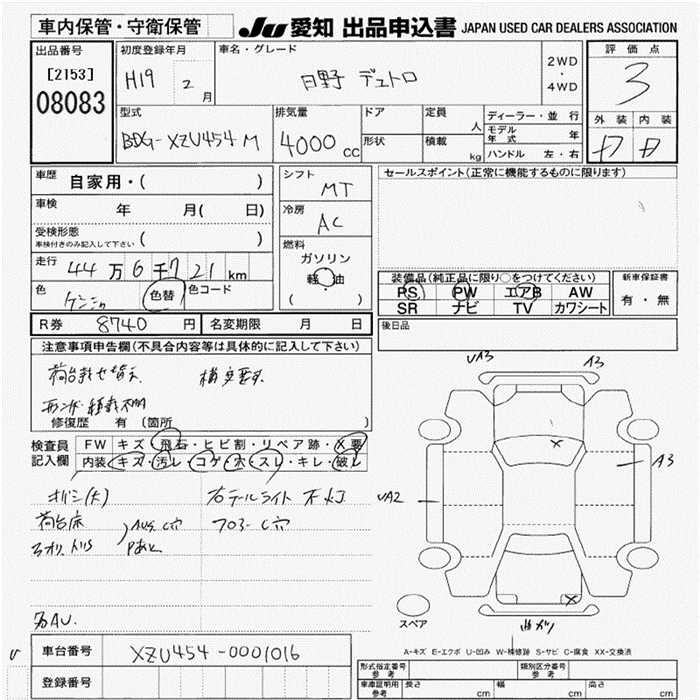 車内保管・守衛保管 JU 愛知 出品申込書 JAPAN USED CAR DEALERS ASSOCIATION
出品番号 初度登録年月 車名・グレード 評価点
[2153] H19 2月 日野 デュトロ 2WD・4WD 3
08083
型式 排気量 ドア 定員 人 ディーラー・並行 外装 内装
BDG-XZU454M 4000cc 形状 積載 kg モデル年式 年
ハンドル 左・右
車歴 自家用・( ) シフト MT セールスポイント(正常に機能するものに限ります)
車検 年 月( 日) 冷房 AC
受検形態 車検付きのみ記入して下さい ( ) 燃料 ガソリン
走行 44万6千721km 軽油 ( )
装備品(純正品に限り○をつけてください) 新車保証書
色 色替 色コード PS PW エアB AW 有・無
SR ナビ TV カワシート
R券 8740円 名変期限 月 日 後日品
注意事項申告欄(不具合内容等は具体的に記入して下さい)
修復歴 有(箇所 )
UA3 A3
検査員 FW キズ・飛石・ヒビ割・リペア跡・X要
記入欄 内装 キズ・汚レ・コゲ・穴・スレ・キレ・破レ
A3
UA2
右テールライト 不灯
荷台床 フロアーC穴
スペア
A-キズ E-エクボ U-凹み W-補修跡 S-サビ C-腐食 XX-交換済
U 車台番号 XZU454-0001016
登録番号
型式指定番号 参考 類別区分番号 参考
車庫証明用 参考 長さ cm 幅 cm 高さ cm